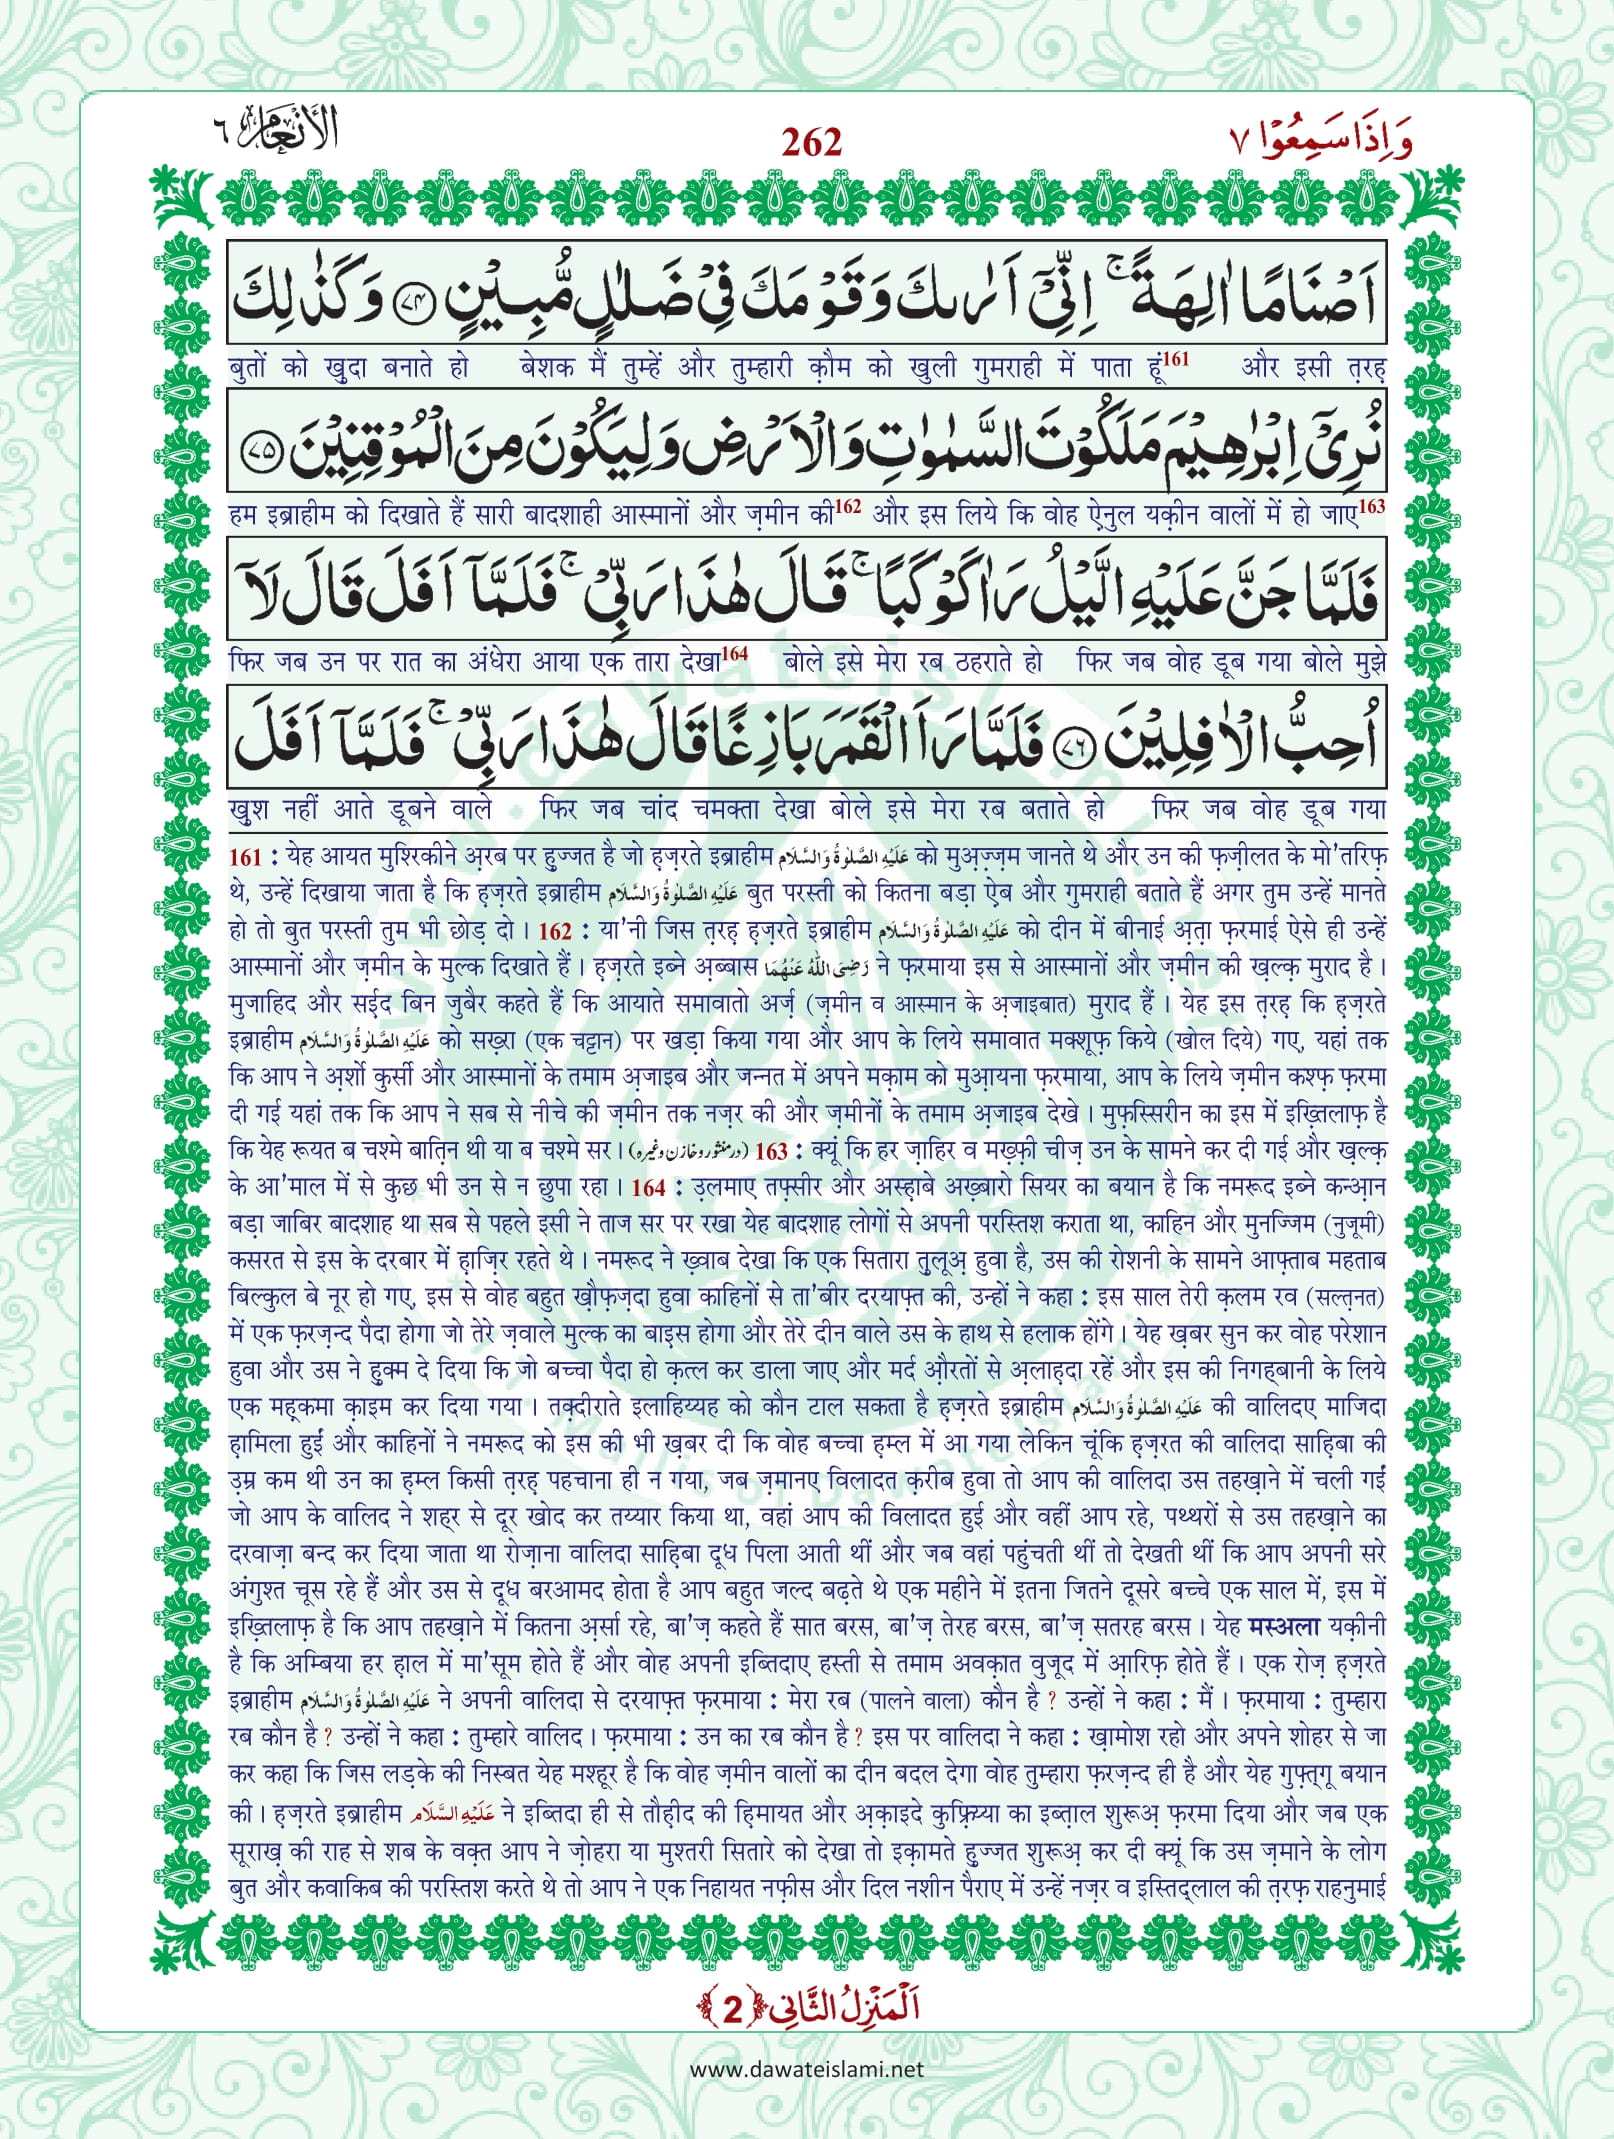 وَاِذَا سَمِعُوْا ٧
262
الأنعام ٦
اَصْنَامًا اٰلِهَةً ۚ اِنِّیْۤ اَرٰىكَ وَ قَوْمَكَ فِیْ ضَلٰلٍ مُّبِیْنٍ ﴿۷۴﴾ وَ كَذٰلِكَ
बुतों को ख़ुदा बनाते हो बेशक मैं तुम्हें और तुम्हारी क़ौम को खुली गुमराही में पाता हूं161 और इसी त़रह़
نُرِیْۤ اِبْرٰهِیْمَ مَلَكُوْتَ السَّمٰوٰتِ وَ الْاَرْضِ وَ لِیَكُوْنَ مِنَ الْمُوْقِنِیْنَ ﴿۷۵﴾
हम इब्राहीम को दिखाते हैं सारी बादशाही आस्मानों और ज़मीन की162 और इस लिये कि वोह ऐनुल यक़ीन वालों में हो जाए163
فَلَمَّا جَنَّ عَلَیْهِ الَّیْلُ رَاٰ كَوْكَبًا ۚ قَالَ هٰذَا رَبِّیْ ۚ فَلَمَّاۤ اَفَلَ قَالَ لَاۤ
फिर जब उन पर रात का अंधेरा आया एक तारा देखा164 बोले इसे मेरा रब ठहराते हो फिर जब वोह डूब गया बोले मुझे
اُحِبُّ الْاٰفِلِیْنَ ﴿۷۶﴾ فَلَمَّا رَاَ الْقَمَرَ بَازِغًا قَالَ هٰذَا رَبِّیْ ۚ فَلَمَّاۤ اَفَلَ
खु़श नहीं आते डूबने वाले फिर जब चांद चमक्ता देखा बोले इसे मेरा रब बताते हो फिर जब वोह डूब गया
161 : येह आयत मुश्रिकीने अ़रब पर हु़ज्जत है जो ह़ज़रते इब्राहीम عَلَیْهِ الصَّلٰوةُ وَالسَّلَام को मुअ़ज़्ज़म जानते थे और उन की फ़ज़ीलत के मो'तरिफ़
थे, उन्हें दिखाया जाता है कि ह़ज़रते इब्राहीम عَلَیْهِ الصَّلٰوةُ وَالسَّلَام बुत परस्ती को कितना बड़ा ऐ़ब और गुमराही बताते हैं अगर तुम उन्हें मानते
हो तो बुत परस्ती तुम भी छोड़ दो। 162 : या'नी जिस त़रह़ ह़ज़रते इब्राहीम عَلَیْهِ الصَّلٰوةُ وَالسَّلَام को दीन में बीनाई अ़त़ा फ़रमाई ऐसे ही उन्हें
आस्मानों और ज़मीन के मुल्क दिखाते हैं। ह़ज़रते इब्ने अ़ब्बास رَضِیَ اللهُ عَنْهُمَا ने फ़रमाया इस से आस्मानों और ज़मीन की ख़ल्क़ मुराद है।
मुजाहिद और सई़द बिन जुबैर कहते हैं कि आयाते समावातो अर्ज़ (ज़मीन व आस्मान के अ़जाइबात) मुराद हैं। येह इस त़रह़ कि ह़ज़रते
इब्राहीम عَلَیْهِ الصَّلٰوةُ وَالسَّلَام को सख़्रा (एक चट्टान) पर खड़ा किया गया और आप के लिये समावात मक्शूफ़ किये (खोल दिये) गए, यहां तक
कि आप ने अ़र्शो कुर्सी और आस्मानों के तमाम अ़जाइब और जन्नत में अपने मक़ाम को मुआ़यना फ़रमाया, आप के लिये ज़मीन कश्फ़ फ़रमा
दी गई यहां तक कि आप ने सब से नीचे की ज़मीन तक नज़र की और ज़मीनों के तमाम अ़जाइब देखे। मुफ़स्सिरीन का इस में इख़्तिलाफ़ है
कि येह रूयत ब चश्मे बात़िन थी या ब चश्मे सर। (درمنثور و خازن وغیرہ) 163 : क्यूं कि हर ज़ाहिर व मख़्फ़ी चीज़ उन के सामने कर दी गई और ख़ल्क़
के आ'माल में से कुछ भी उन से न छुपा रहा। 164 : उ़लमाए तफ़्सीर और अस्ह़ाबे अख़्बारो सियर का बयान है कि नमरूद इब्ने कन्आ़न
बड़ा जाबिर बादशाह था सब से पहले इसी ने ताज सर पर रखा येह बादशाह लोगों से अपनी परस्तिश कराता था, काहिन और मुनज्जिम (नुजूमी)
कसरत से इस के दरबार में ह़ाज़िर रहते थे। नमरूद ने ख़्वाब देखा कि एक सितारा त़ुलूअ़ हुवा है, उस की रोशनी के सामने आफ़्ताब महताब
बिल्कुल बे नूर हो गए, इस से वोह बहुत ख़ौफ़ज़दा हुवा काहिनों से ता'बीर दरयाफ़्त की, उन्हों ने कहा : इस साल तेरी क़लम रव (सल्त़नत)
में एक फ़रज़न्द पैदा होगा जो तेरे ज़वाले मुल्क का बाइ़स होगा और तेरे दीन वाले उस के हाथ से हलाक होंगे। येह ख़बर सुन कर वोह परेशान
हुवा और उस ने हु़क्म दे दिया कि जो बच्चा पैदा हो क़त्ल कर डाला जाए और मर्द औ़रतों से अ़लाह़दा रहें और इस की निगह्बानी के लिये
एक मह़कमा क़ाइम कर दिया गया। तक़्दीराते इलाहिय्यह को कौन टाल सकता है ह़ज़रते इब्राहीम عَلَیْهِ الصَّلٰوةُ وَالسَّلَام की वालिदए माजिदा
ह़ामिला हुई और काहिनों ने नमरूद को इस की भी ख़बर दी कि वोह बच्चा ह़म्ल में आ गया लेकिन चूंकि ह़ज़रत की वालिदा साह़िबा की
उ़म्र कम थी उन का ह़म्ल किसी त़रह़ पहचाना ही न गया, जब ज़मानए विलादत क़रीब हुवा तो आप की वालिदा उस तहख़ाने में चली गईं
जो आप के वालिद ने शह्र से दूर खोद कर तय्यार किया था, वहां आप की विलादत हुई और वहीं आप रहे, पथ्थरों से उस तहख़ाने का
दरवाज़ा बन्द कर दिया जाता था रोज़ाना वालिदा साह़िबा दूध पिला आती थीं और जब वहां पहुंचती थीं तो देखती थीं कि आप अपनी सरे
अंगुश्त चूस रहे हैं और उस से दूध बरआमद होता है आप बहुत जल्द बढ़ते थे एक महीने में इतना जितने दूसरे बच्चे एक साल में, इस में
इख़्तिलाफ़ है कि आप तहख़ाने में कितना अ़र्सा रहे, बा'ज़ कहते हैं सात बरस, बा'ज़ तेरह बरस, बा'ज़ सतरह बरस। येह मस्अला यक़ीनी
है कि अम्बिया हर ह़ाल में मा'सूम होते हैं और वोह अपनी इब्तिदाए हस्ती से तमाम अवक़ात वुजूद में आ़रिफ़ होते हैं। एक रोज़ ह़ज़रते
इब्राहीम عَلَیْهِ الصَّلٰوةُ وَالسَّلَام ने अपनी वालिदा से दरयाफ़्त फ़रमाया : मेरा रब (पालने वाला) कौन है ? उन्हों ने कहा : मैं। फ़रमाया : तुम्हारा
रब कौन है ? उन्हों ने कहा : तुम्हारे वालिद। फ़रमाया : उन का रब कौन है ? इस पर वालिदा ने कहा : ख़ामोश रहो और अपने शोहर से जा
कर कहा कि जिस लड़के की निस्बत येह मश्हूर है कि वोह ज़मीन वालों का दीन बदल देगा वोह तुम्हारा फ़रज़न्द ही है और येह गुफ़्त्गू बयान
की। ह़ज़रते इब्राहीम عَلَیْهِ السَّلَام ने इब्तिदा ही से तौह़ीद की ह़िमायत और अ़क़ाइदे कुफ़्रिय्या का इब्त़ाल शुरूअ़ फ़रमा दिया और जब एक
सूराख़ की राह से शब के वक़्त आप ने ज़ोहरा या मुश्तरी सितारे को देखा तो इक़ामते हु़ज्जत शुरूअ़ कर दी क्यूं कि उस ज़माने के लोग
बुत और कवाकिब की परस्तिश करते थे तो आप ने एक निहायत नफ़ीस और दिल नशीन पैराए में उन्हें नज़र व इस्तिद्लाल की त़रफ़ राहनुमाई
اَلْمَنْزِلُ الثَّانِی ﴿2﴾
www.dawateislami.net